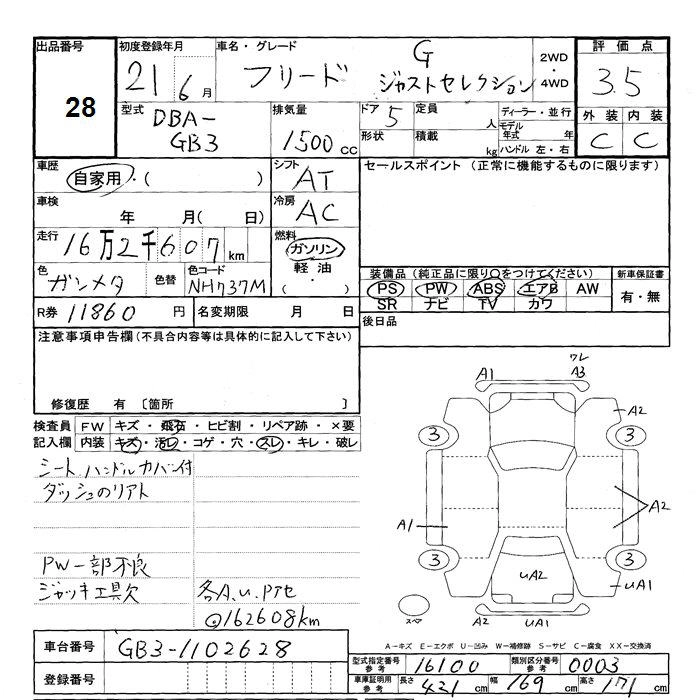 出品番号
28
初度登録年月
21 6月
車名・グレード
フリード G
ジャストセレクション
2WD
・
4WD
評価点
3.5
外装 内装
C C
型式
DBA-
GB3
排気量
1500cc
ドア 5
形状
定員
人
積載
kg
ディーラー・並行
モデル
年式 年
ハンドル 左・右
車歴
自家用・( )
シフト
AT
セールスポイント (正常に機能するものに限ります)
車検
年 月( 日)
冷房
AC
走行
16万2千607km
燃料
ガソリン
軽油
( )
色
ガンメタ
色替
色コード
NH737M
装備品 (純正品に限り○をつけてください)
PS PW ABS エアB AW
SR ナビ TV カワ
新車保証書
有・無
R券 11860円
名変期限 月 日
後日品
注意事項申告欄(不具合内容等は具体的に記入して下さい)
修復歴 有 〔箇所 〕
検査員
記入欄
FW キズ・飛石・ヒビ割・リペア跡・×要
内装 キズ・汚レ・コゲ・穴・スレ・キレ・破レ
シート ハンドルカバー付
ダッシュのリアト
PW一部不良
ジャッキ工具欠
各A.u.Pアセ
@162608km
A1
ワレ
A3
A2
3 3
A1
A2
3 3
uA2
uA1
スペア
A2 uA1
A-キズ E-エクボ U-凹み W-補修跡 S-サビ C-腐食 XX-交換済
車台番号 GB3-1102628
登録番号
型式指定番号
参考
16100
類別区分番号
参考
0003
車庫証明用
参考
長さ 421cm 幅 169cm 高さ 171cm